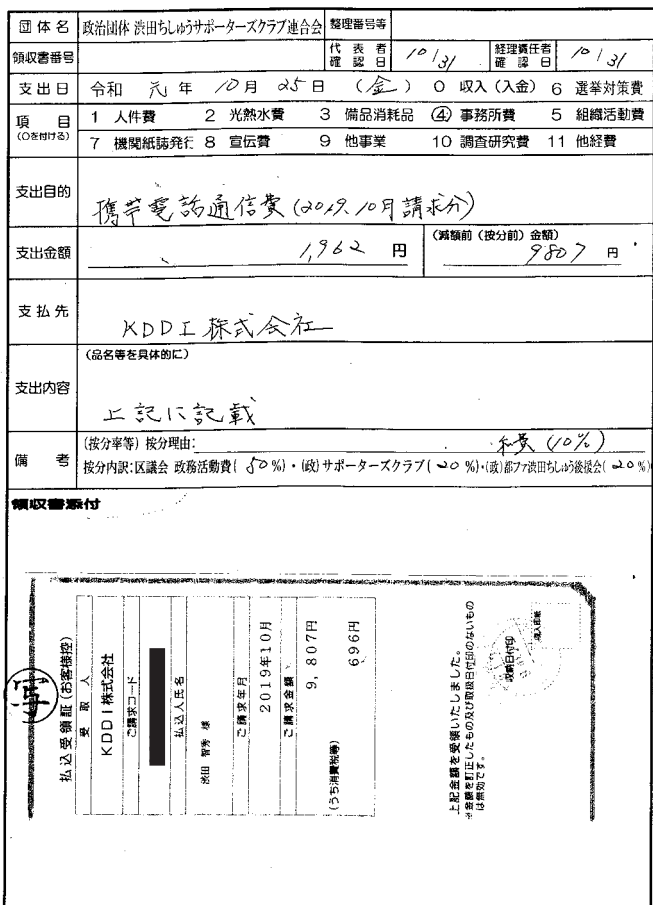 団体名 政治団体 渋田ちしゅうサポーターズクラブ連合会 整理番号等
領収書番号 代表者確認日 10/31 経理責任者確認日 10/31
支出日 令和 元年 10月 25日 (金) 0 収入(入金) 6 選挙対策費
項目 (○を付ける) 1 人件費 2 光熱水費 3 備品消耗品 ④ 事務所費 5 組織活動費
7 機関紙誌発行 8 宣伝費 9 他事業 10 調査研究費 11 他経費
支出目的 携帯電話通信費(2019.10月請求分)
支出金額 1,962 円 (減額前(按分前)金額) 9807 円
支払先 KDDI株式会社
支出内容 (品名等を具体的に)
上記に記載
備考 (按分率等) 按分理由: 私費(10%)
按分内訳:区議会 政務活動費(50%)・(政)サポーターズクラブ(20%)・(政)都ファ渋田ちしゅう後援会(20%)
領収書添付
払込受領証(お客様控)
受取人
KDDI株式会社
ご請求コード
払込人氏名
渋田 智秀 様
ご請求年月
2019年10月
ご請求金額
9,807円
(うち消費税等) 696円
上記金額を受領いたしました。
※金額を訂正したもの及び取扱日付印のないもの
は無効です。
収納日付印
収入印紙